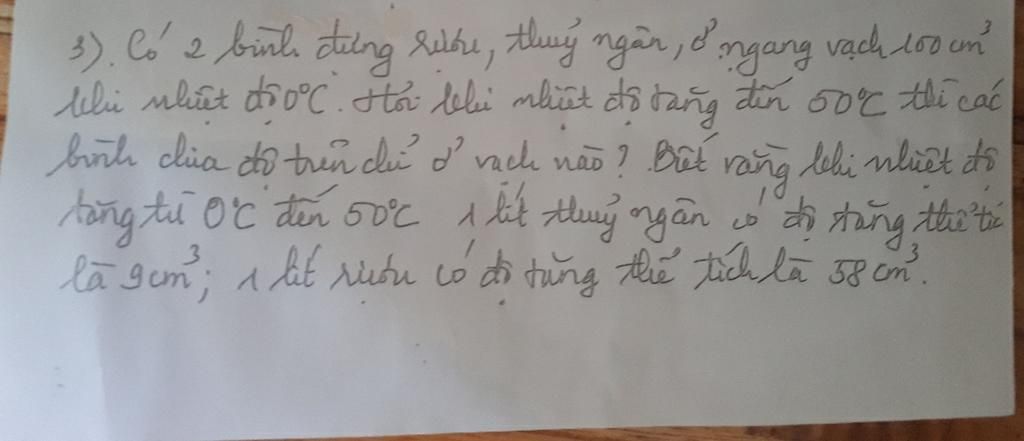 3). Có 2 bình đựng rượu, thuỷ ngân, ở ngang vạch 100 cm³
khi nhiệt độ 0°C. Hỏi khi nhiệt độ tăng đến 50°C thì các
bình chia độ trên chỉ ở vạch nào? Biết rằng khi nhiệt độ
tăng từ 0°C đến 50°C 1 lít thuỷ ngân có độ tăng thể tíc
là 9cm³; 1 lít rượu có độ tăng thể tích là 58 cm³.